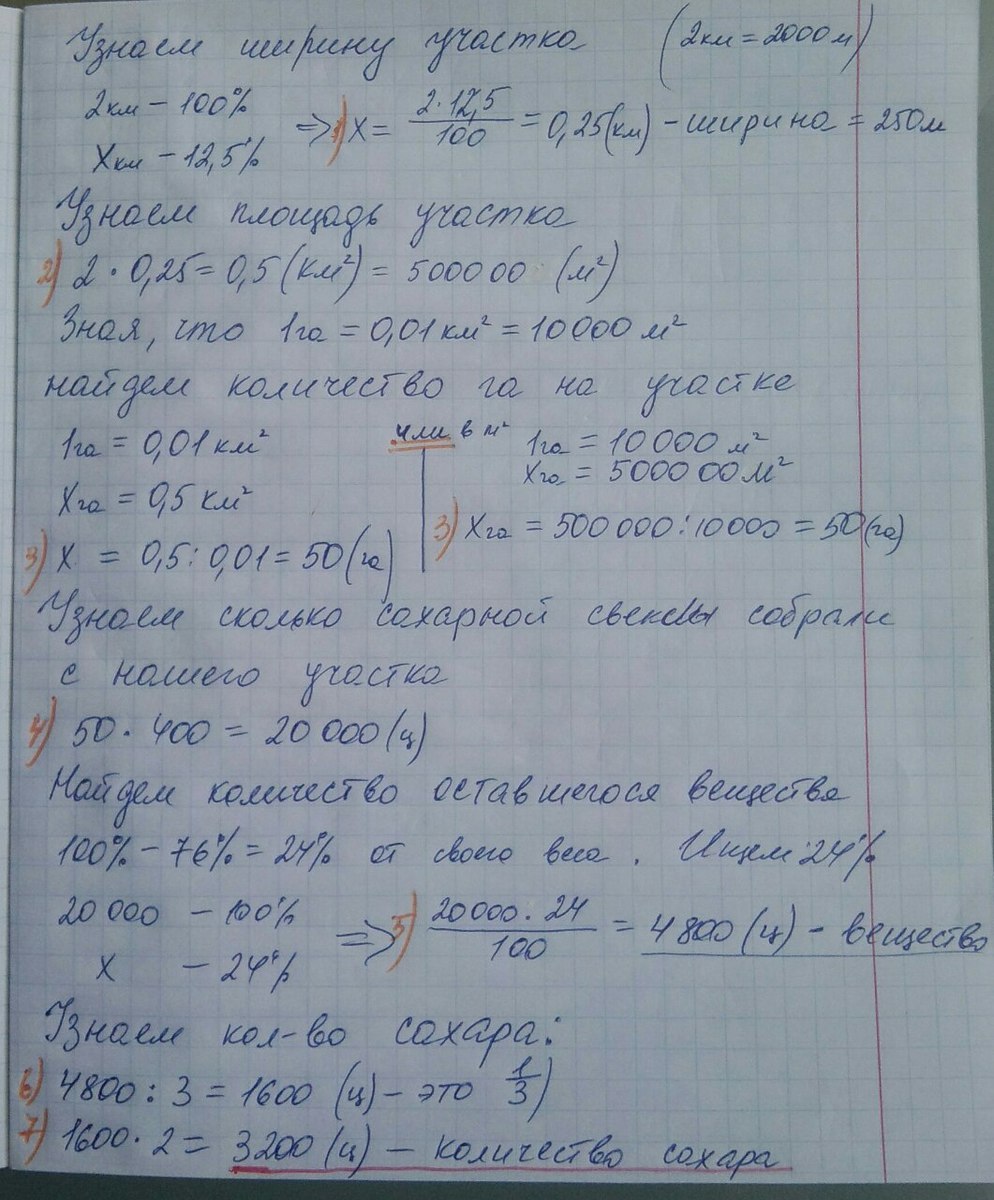 Узнаем ширину участка (2км = 2000м)
2км – 100%
Xкм – 12,5%
=> 1) X = 2·12,5/100 = 0,25(км) – ширина = 250м
Узнаем площадь участка
2) 2·0,25 = 0,5(км²) = 500000 (м²)
Зная, что 1га = 0,01 км² = 10000 м²
найдем количество га на участке
1га = 0,01 км²
Xга = 0,5 км²
3) X = 0,5 : 0,01 = 50(га)
или в м²
1га = 10000 м²
Xга = 500000 м²
3) Xга = 500000 : 10000 = 50(га)
Узнаем сколько сахарной свеклы собрали
с нашего участка
4) 50 · 400 = 20 000 (ц)
Найдем количество оставшегося вещества
100% – 76% = 24% от своего веса. Ищем 24%
20 000 – 100%
X – 24%
=> 5) 20000·24/100 = 4800 (ц) – вещество
Узнаем кол-во сахара:
6) 4800 : 3 = 1600 (ц) – это 1/3)
7) 1600 · 2 = 3200 (ц) – количество сахара